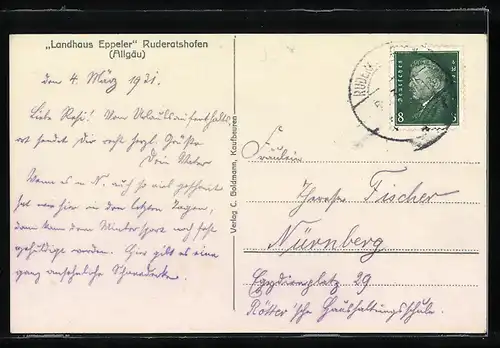 „Landhaus Eppeler" Ruderatshofen
(Allgäu)
den 4. März 1931.
Liebe Resi! Vom Urlaubsaufenthalts-
ort sendet Dir recht herzl. Grüße
Dein Vater
Wenn es in N. auch so viel geschneit
hat wie hier in den letzten Tagen,
dann kann dem Wintersport noch fest
gehuldigt werden. Hier gibt es eine
ganz ansehnliche Schneedecke.
Verlag C. Boldmann, Kaufbeuren
RUDER
Deutsches Reich
8 8
Fräulein
Therese Fischer
Nürnberg
Egydienplatz 29
Rötter'sche Haushaltungsschule.